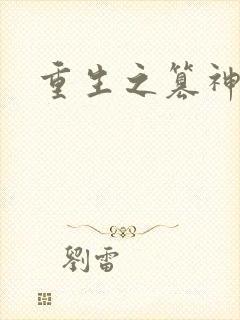 重生之篡神
劉雷